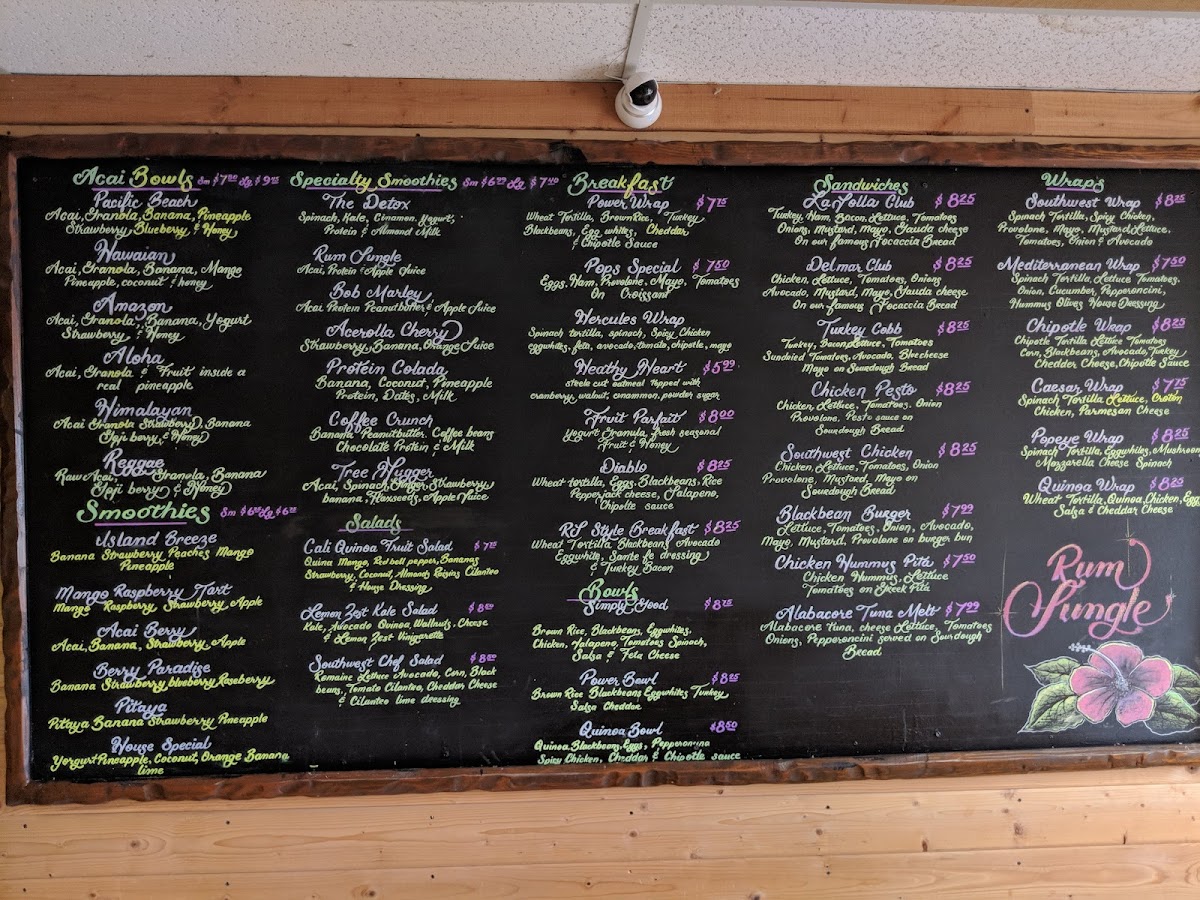 Acai Bowls Sm $7.00 Lg $9.75
Pacific Beach
Acai, Granola, Banana, Pineapple
Strawberry, Blueberry, & Honey
Hawaiian
Acai, Granola, Banana, Mango
Pineapple, coconut & honey
Amazon
Acai, Granola, Banana, Yogurt
Strawberry & Honey
Aloha
Acai, Granola & Fruit inside a
real pineapple
Himalayan
Acai Granola Strawberry, Banana
Goji berry, & Honey
Reggae
Raw Acai, Granola, Banana
Goji berry & Honey
Smoothies Sm $6.00 Lg $6.75
Island Breeze
Banana Strawberry Peaches Mango
Pineapple
Mango Raspberry Tart
Mango Raspberry Strawberry, Apple
Acai Berry
Acai, Banana, Strawberry, Apple
Berry Paradise
Banana Strawberry blueberry Raseberry
Pitaya
Pitaya Banana Strawberry Pineapple
House Special
Yorgurt Pineapple, Coconut, Orange Banana
lime
Specialty Smoothies Sm $6.99 Lg $7.40
The Detox
Spinach, Kale, Cinamen, Yogurt,
Protein & Almond Milk
Rum Jungle
Acai, Protein & Apple Juice
Bob Marley
Acai Protein Peanutbutter & Apple Juice
Acerolla Cherry
Strawberry, Banana, Orange Juice
Protein Colada
Banana, Coconut, Pineapple
Protein, Dates, Milk
Coffee Crunch
Banana Peanutbutter, Coffee beans
Chocolate Protein & Milk
Tree Hugger
Acai, Spinach, Ginger, Strawberry
banana, Flaxseeds, Apple Juice
Salads
Cali Quinoa Fruit Salad $7.75
Quina Mango, Red bell pepper, Bananas
Strawberry, Coconut, Almonds Raisins Cilantro
& House Dressing
Lemon Zest Kale Salad $8.00
Kale, Avocado Quinoa, Wallnuts, Cheese
& Lemon Zest Vinigarette
Southwest Chef Salad $8.00
Romaine Lettuce Avocado, Corn, Black
beans, Tomato Cilantro, Cheddar Cheese
& Cilantro lime dressing
Breakfast
Power Wrap $7.75
Wheat Tortilla, Brown Rice, Turkey
Blackbeans, Egg whites, Cheddar
& Chipotle Sauce
Pops Special $7.50
Eggs, Ham, Provolone, Mayo, Tomatoes
On Croissant
Hercules Wrap
Spinach tortilla, spinach, Spicy Chicken
eggwhites, feta, avocado, tomato, chipotle, mayo
Heathy Heart $5.99
steele cut oatmeal topped with
cranberry, walnut, cinnammon, powder sugar
Fruit Parfait $8.00
Yogurt Granula, fresh seasonal
Fruit & Honey
Diablo $8.25
Wheat tortilla, Eggs, Blackbeans, Rice
Pepperjack cheese, Jalapeno,
Chipotle sauce
RJ Style Breakfast $8.25
Wheat Tortilla Blackbeans Avocado
Eggwhite, Sante fe dressing
& Turkey Bacon
Bowls
Simply Good $8.75
Brown Rice, Blackbeans, Eggwhites,
Chicken, Jalapeno, Tomatoes Spinach,
Salsa & Feta Cheese
Power Bowl $8.25
Brown Rice Blackbeans Eggwhites Turkey
Salsa Cheddar
Quinoa Bowl $8.50
Quinoa, Blackbeans, Eggs, Pepperonnina
Spicy Chicken, Cheddar & Chipotle sauce
Sandwiches
La Jolla Club $8.25
Turkey, Ham, Bacon, Lettuce, Tomatoes
Onions, Mustard, Mayo, Gauda cheese
On our famous Focaccia Bread
Delmar Club $8.25
Chicken, Lettuce, Tomatoes, Onions
Avocado, Mustard, Mayo, Gauda cheese
On our famous Focaccia Bread
Turkey Cobb $8.25
Turkey, Bacon, Lettuce, Tomatoes
Sundried Tomatoes, Avocado, Blue cheese
Mayo on Sourdough Bread
Chicken Pesto $8.25
Chicken, Lettuce, Tomatoes, Onion
Provolone, Pesto sauce on
Sourdough Bread
Southwest Chicken $8.25
Chicken, Lettuce, Tomatoes, Onion
Provolone, Mustard, Mayo on
Sourdough Bread
Blackbean Burger $7.99
Lettuce, Tomatoes, Onion, Avocado,
Maye, Mustard, Provolone on burger bun
Chicken Hummus Pita $7.50
Chicken Hummus, Lettuce
Tomatoes on Greek Pita
Alabacore Tuna Melt $7.99
Alabacore tuna, cheese Lettuce, Tomatoes
Onions, Pepperoncini served on Sourdough
Bread
Wraps
Southwest Wrap $8.25
Spinach Tortilla, Spicy Chicken,
Provolone, Mayo, Mustard, Lettuce,
Tomatoes, Onion & Avocado
Mediterranean Wrap $7.50
Spinach Tortilla Lettuce Tomatoes,
Onion, Cucumber, Pepperoncini,
Hummus Olives House Dressing
Chipotle Wrap $8.25
Chipotle Tortilla Lettuce Tomatoes
Corn, Blackbeans, Avocado, Turkey
Chedder Cheese, Chipotle Sauce
Caesar Wrap $7.75
Spinach Tortilla, Lettuce, Croton
Chicken, Parmesan Cheese
Popeye Wrap $8.25
Spinach Tortilla, Eggwhites, Mushroom
Mozzarella Cheese Spinach
Quinoa Wrap $8.25
Wheat Tortilla, Quinoa, Chicken, Egg
Salsa & Cheddar Cheese
Rum
Jungle